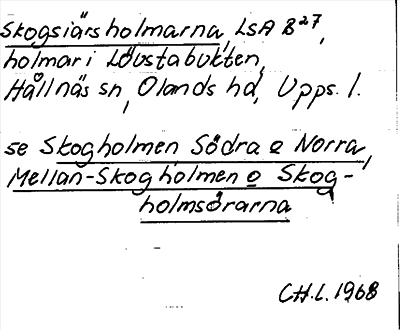 Skogsiärsholmarna, LSA B27,
holmar i Lövstabukten,
Hållnäs sn, Olands hd, Upps. l.
se Skogholmen Södra o Norra,
Mellan-Skogholmen o Skog-
holmsörarna
CH.L. 1968